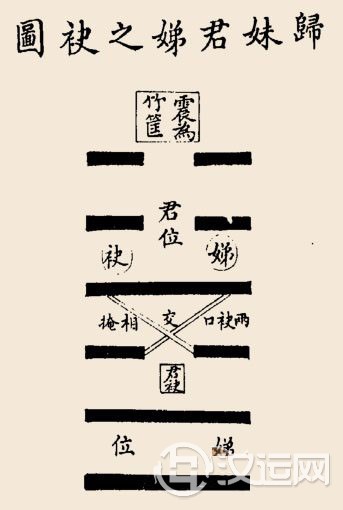 歸妹君娣之袂圖
震為
竹筐
君位
娣 袂
兩袂口 交 相掩
君袂
娣 位
汉运网